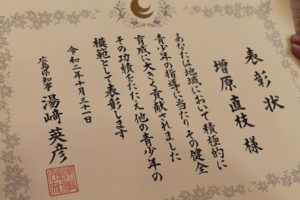 表彰状
増原直枝様
あなたは地域において積極的に
青少年の指導に当たりその健全
育成に大きく貢献されました
その功績をたたえ他の青少年の
模範として表彰します
令和二年十月三十一日
広島県知事 湯﨑英彦